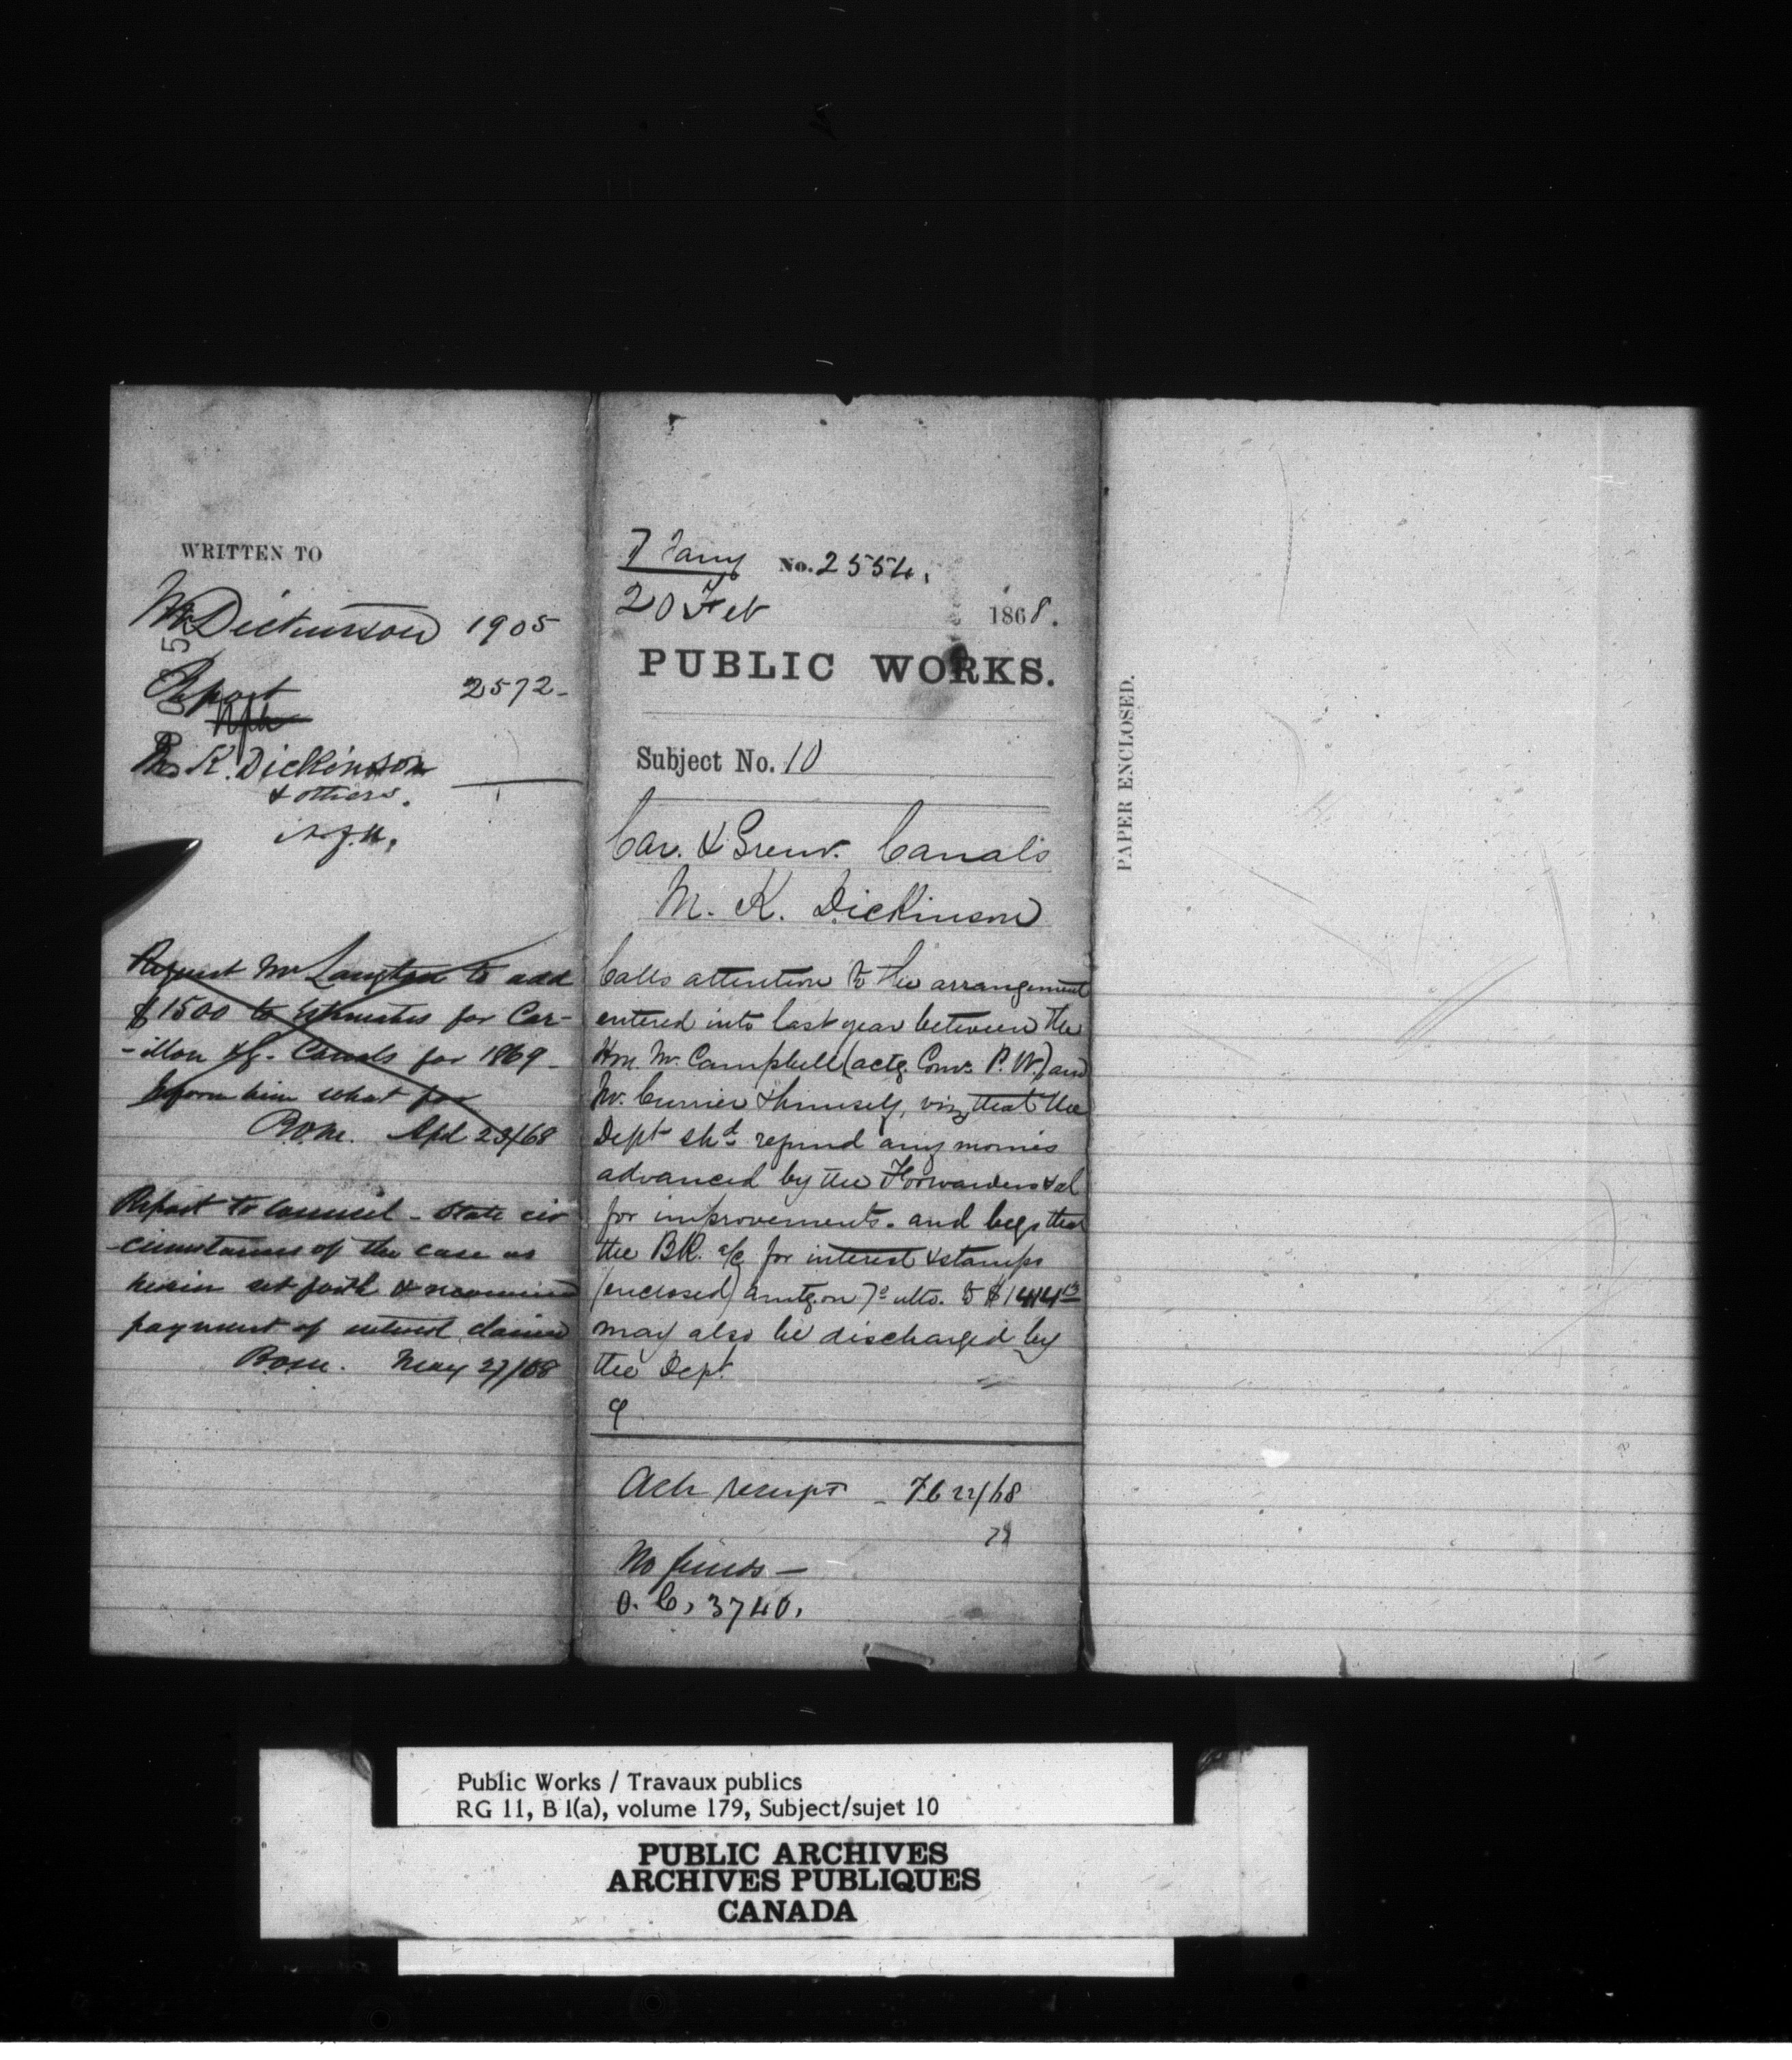 WRITTEN TO
Mr Dickinson 1905
Report 2572-
M. K. Dickinson
& others.
Request Mr Langton to add
$1500 to Estimates for Car-
-illon & G. Canals for 1869 -
Inform him what for
Apl 23/68
Report to Council - State cir
-cumstances of the case as
herein set forth & recommend
payment of interest claimed
May 27/68
7 Jany No. 2554.
20 Feb 1868.
PUBLIC WORKS.
Subject No. 10
Car. & Grenv. Canals
M. K. Dickinson
Calls attention to the arrangement
entered into last year between the
Hon. Mr. Campbell (actg. Comr. P. W.) and
Mr. Currier & himself, viz, that the
Dept shd. refund any monies
advanced by the Forwarders &al
for improvements. and begs that
the BK. a/c for interest & stamps
(enclosed) amtg. on 7th ulto. to $1414
may also be discharged by
the Dept
9
Ack receipt - Fb 22/68
No funds -
O. C. 3740.
PAPER ENCLOSED.
Public Works / Travaux publics
RG 11, B 1(a), volume 179, Subject/sujet 10
PUBLIC ARCHIVES
ARCHIVES PUBLIQUES
CANADA